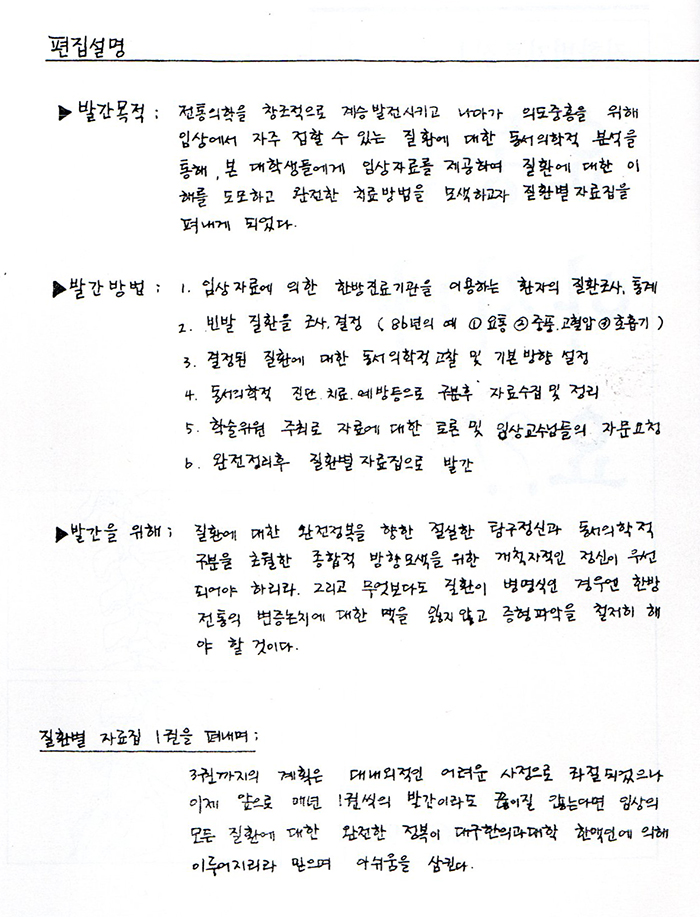 편집설명
▶ 발간목적 ; 전통의학을 창조적으로 계승발전시키고 나아가 의도중흥을 위해
임상에서 자주 접할 수 있는 질환에 대한 동서의학적 분석을
통해, 본 대학생들에게 임상자료를 제공하여 질환에 대한 이
해를 도모하고 완전한 치료방법을 모색하고자 질환별 자료집을
펴내게 되었다.
▶ 발간방법 ; 1. 임상자료에 의한 한방진료기관을 이용하는 환자의 질환조사, 통계
2. 빈발 질환을 조사, 결정 ( 86년의 예 ① 요통 ② 중풍.고혈압 ③ 호흡기 )
3. 결정된 질환에 대한 동서의학적고찰 및 기본방향 설정
4. 동서의학적 진단.치료.예방등으로 구분후 자료수집 및 정리
5. 학술위원 주최로 자료에 대한 토론 및 임상교수님들의 자문요청
6. 완전정리후 질환별 자료집으로 발간
▶ 발간을 위해 ; 질환에 대한 완전정복을 향한 절실한 탐구정신과 동서의학적
구분을 초월한 종합적 방향모색을 위한 개척자적인 정신이 우선
되어야 하리라. 그리고 무엇보다도 질환이 병명식인 경우엔 한방
전통의 변증논치에 대한 맥을 잃지않고 증형파악을 철저히 해
야 할 것이다.
질환별 자료집 1권을 펴내며 ;
3권까지의 계획은 대내외적인 어려운 사정으로 좌절되었으나
이제 앞으로 매년 1권씩의 발간이라도 끊이질 않는다면 임상의
모든 질환에 대한 완전한 정복이 대구한의과대학 한맥인에 의해
이루어지리라 믿으며 아쉬움을 삼킨다.